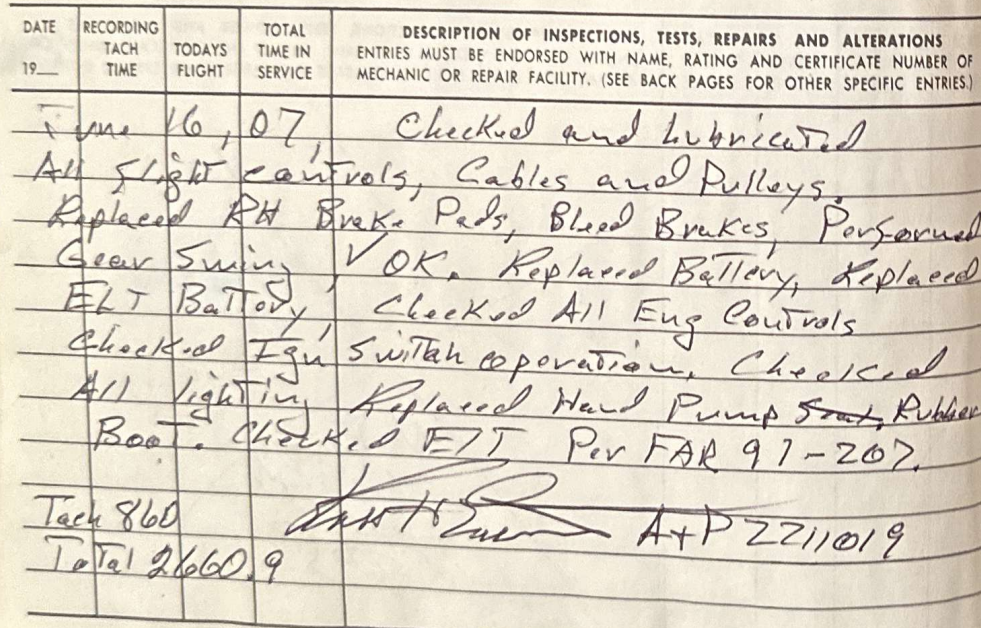 DATE 19__ RECORDING TACH TIME TODAYS FLIGHT TOTAL TIME IN SERVICE DESCRIPTION OF INSPECTIONS, TESTS, REPAIRS AND ALTERATIONS
ENTRIES MUST BE ENDORSED WITH NAME, RATING AND CERTIFICATE NUMBER OF
MECHANIC OR REPAIR FACILITY. (SEE BACK PAGES FOR OTHER SPECIFIC ENTRIES.)
June 16, 07, Checked and Lubricated
All flight controls, Cables and Pulleys.
Replaced RH Brake Pads, Bleed Brakes, Performed
Gear Swing, √ OK. Replaced Battery, Replaced
ELT Battery, Checked All Eng Controls
Checked Ign Switch operation, Checked
All lighting Replaced Hand Pump Rubber
Boot. Checked ELT Per FAR 91-207.
Tach 860 A+P 2211019
Total 2660.9